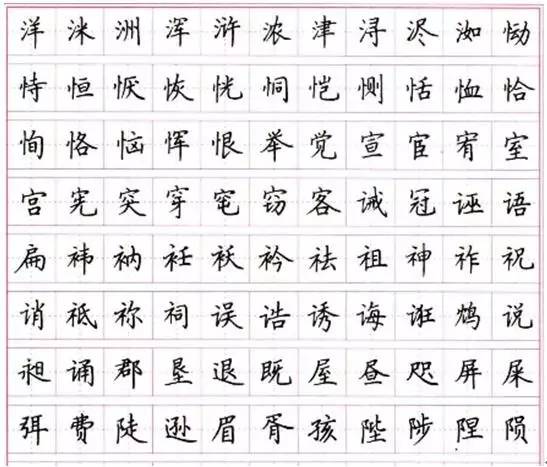 洋洣洲浑浒浓津浔浕洳恸
恃恒恹恢恍恫恺恻恬恤恰
恂恪恼恽恨举觉宣宦宥室
宫宪突穿窀窃客诫冠诬语
扁袆衲衽袄衿祛祖神祚祝
诮祗祢祠误诰诱诲诳鸩说
昶诵郡垦退既屋昼咫屏屎
弭费陡逊眉胥孩陛陟陧陨